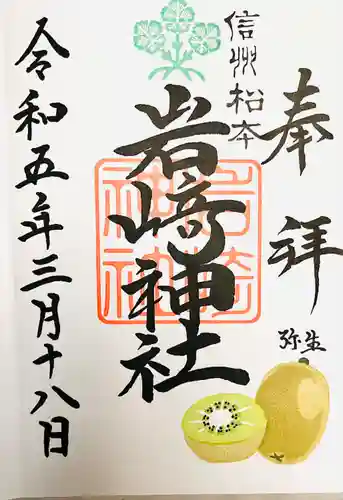 奉拝
弥生
信州松本
岩崎神社
岩崎神社
令和五年三月十八日